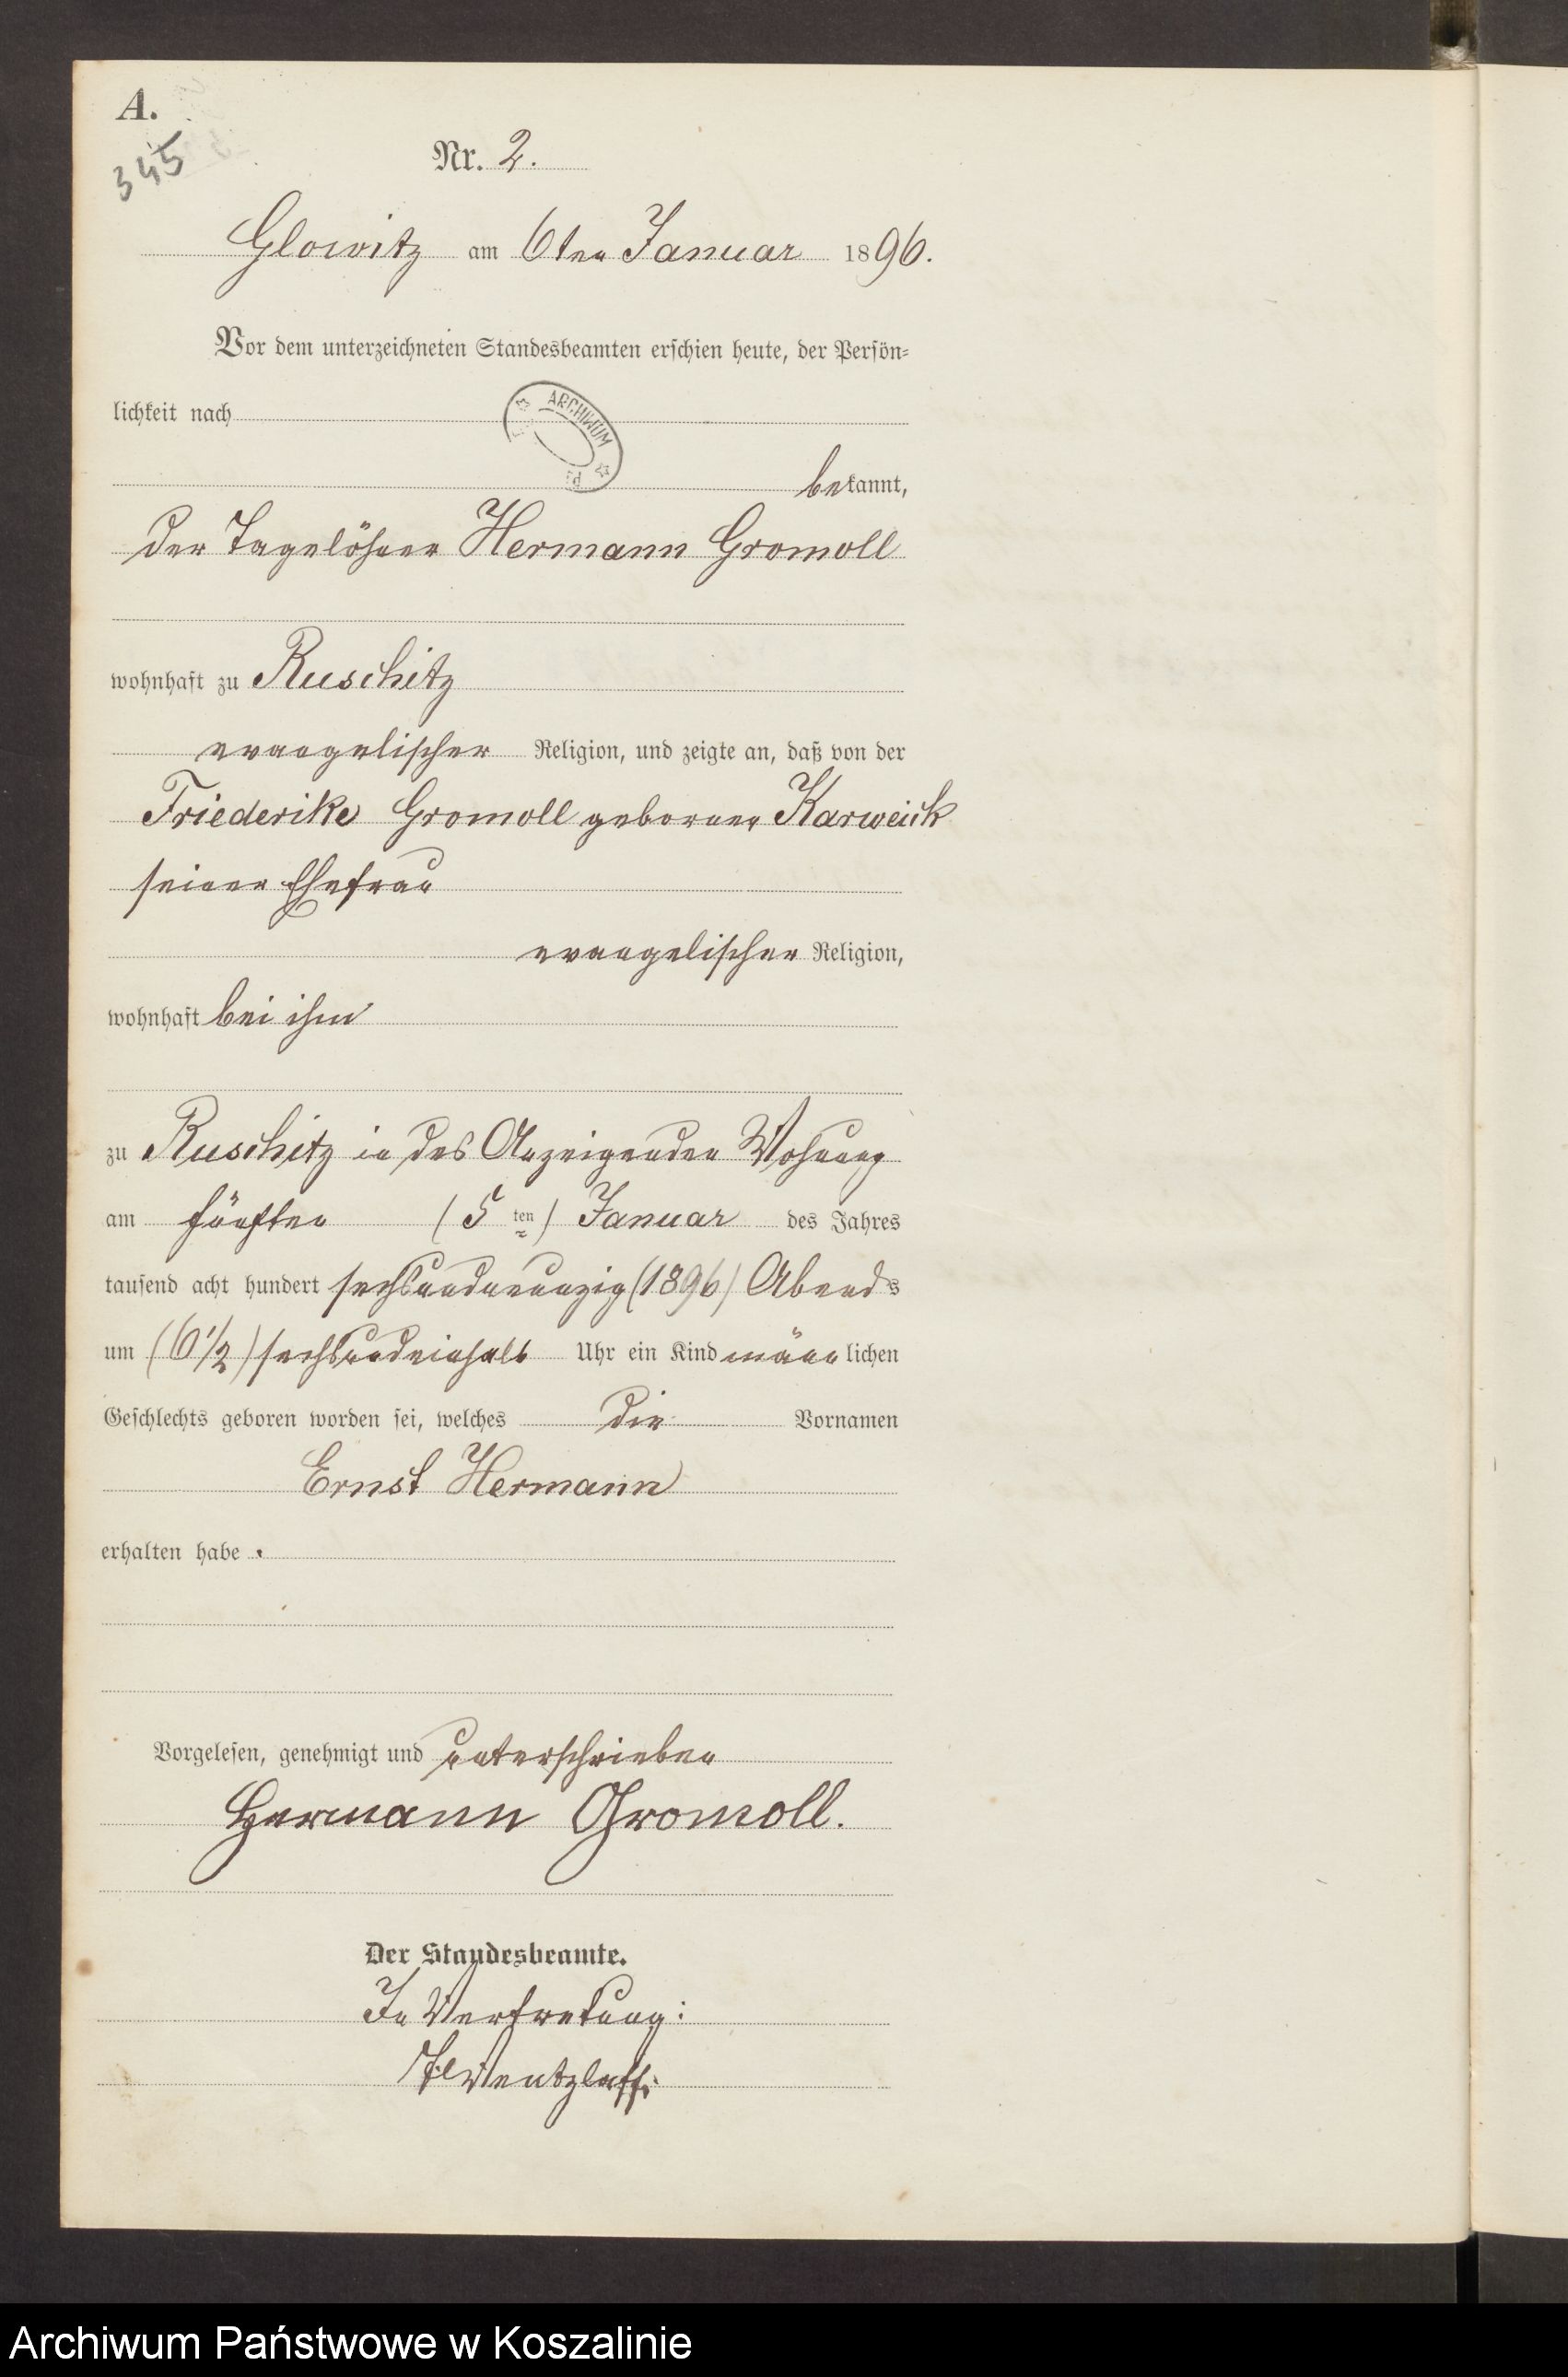 A.
345
Nr. 2.
Glowitz am 6ten Januar 1896.
Vor dem unterzeichneten Standesbeamten erschien heute, der Persön-
lichkeit nach
ARCHIWUM
bekannt,
der Tagelöhner Hermann Gromoll
wohnhaft zu Ruschitz
evangelischer Religion, und zeigte an, daß von der
Friederike Gromoll geborner Karweick
seiner Ehefrau
evangelischer Religion,
wohnhaft bei ihm
zu Ruschitz in des Anzeigenden Wohnung
am fünften (5 ten) Januar des Jahres
tausend acht hundert sechsundneunzig (1896) Abends
um (6 1/2) sechsundeinhalb Uhr ein Kind männlichen
Geschlechts geboren worden sei, welches die Vornamen
Ernst Hermann
erhalten habe.
Vorgelesen, genehmigt und unterschrieben
Hermann Gromoll.
Der Standesbeamte.
In Vertretung:
Wentzlaff.
Archiwum Państwowe w Koszalinie